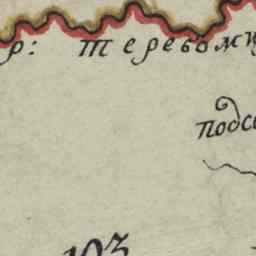 р: теребом
подс
103